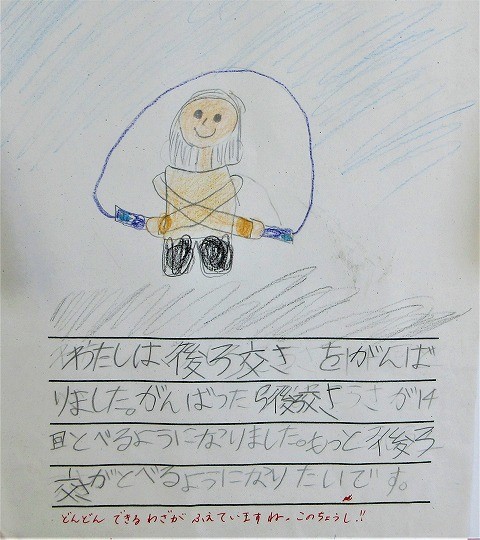 わたしは後ろ交さをがんば
りました。がんばったら後交さが14
回とべるようになりました。もっと後ろ
交さがとべるようになりたいです。
どんどんできるわざがふえていますね。このちょうし!!